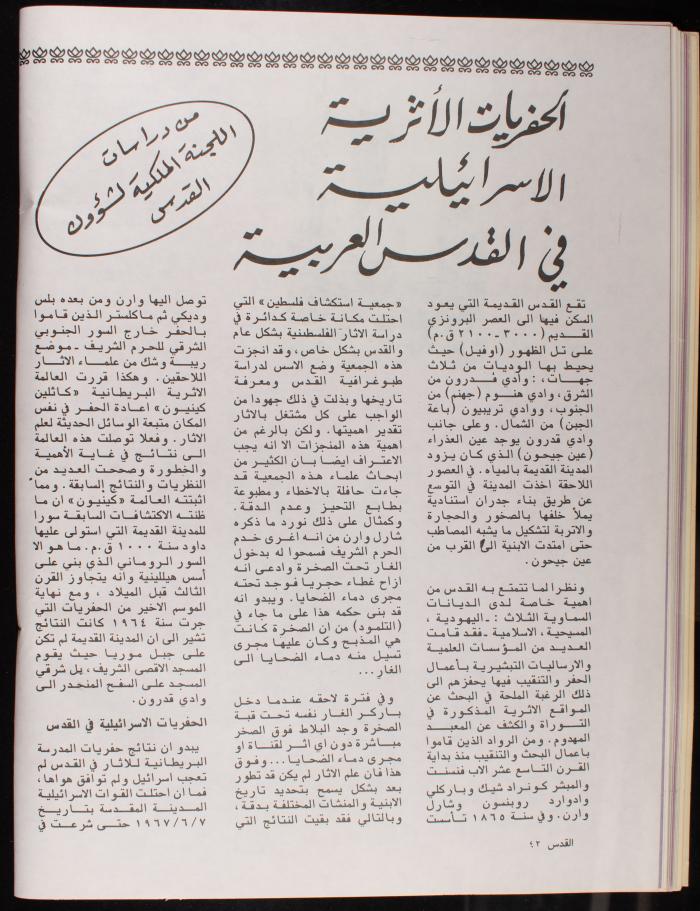 الحفريات الأثرية
الاسرائيلية
في القدس العربية
من دراسات
اللجنة الملكية لشؤون
القدس
تقع القدس القديمة التي يعود
السكن فيها الى العصر البرونزي
القديم (٣٠٠٠ - ٢١٠٠ ق.م)
على تل الظهور (اوفيل) حيث
يحيط بها الوديان من ثلاث
جهات، : وادي قدرون من
الشرق، وادي هنوم (جهنم) من
الجنوب، ووادي تريبيون (باعة
الجبن) من الشمال. وعلى جانب
وادي قدرون يوجد عين العذراء
(عين جيحون) الذي كان يزود
المدينة القديمة بالمياه. في العصور
اللاحقة اخذت المدينة في التوسع
عن طريق بناء جدران استنادية
يملأ خلفها بالصخور والحجارة
والاتربة لتشكيل ما يشبه المصاطب
حتى امتدت الابنية الى القرب من
عين جيحون.
ونظرا لما تتمتع به القدس من
أهمية خاصة لدى الديانات
السماوية الثلاث : - اليهودية ،
المسيحية، الاسلامية - فقد قامت
العديد من المؤسسات العلمية
والارساليات التبشيرية بأعمال
الحفر والتنقيب فيها يحفزهم الى
ذلك الرغبة الملحة في البحث عن
المواقع الاثرية المذكورة في
التوراة والكشف عن المعبد
المهدوم. ومن الرواد الذين قاموا
باعمال البحث والتنقيب منذ بداية
القرن التاسع عشر الاب فنسنت
والمبشر كونراد شيك وباركلي
وادوارد روبنسون وشارل
وارن. وفي سنة ١٨٦٥ تأسست
«جمعية استكشاف فلسطين» التي
احتلت مكانة خاصة كدائرة في
دراسة الاثار الفلسطينية بشكل عام
والقدس بشكل خاص، وقد انجزت
هذه الجمعية وضع الاسس لدراسة
طبوغرافية القدس ومعرفة
تاريخها وبذلت في ذلك جهودا من
الواجب على كل مشتغل بالاثار
تقدير اهميتها. ولكن بالرغم من
اهمية هذه المنجزات الا انه يجب
الاعتراف ايضا بان الكثير من
ابحاث علماء هذه الجمعية قد
جاءت حافلة بالاخطاء ومطبوعة
بطابع التحيز وعدم الدقة.
وكمثال على ذلك نورد ما ذكره
شارل وارن من انه اغرى خدم
الحرم الشريف فسمحوا له بدخول
الغار تحت الصخرة وادعى انه
ازاح غطاء حجريا فوجد تحته
مجرى دماء الضحايا. ويبدو انه
قد بنى حكمه هذا على ما جاء في
(التلمود) من ان الصخرة كانت
هي المذبح وكان عليها مجرى
تسيل منه دماء الضحايا الى
الغار...
وفي فترة لاحقه عندما دخل
باركر الغار نفسه تحت قبة
الصخرة وجد البلاط فوق الصخر
مباشرة دون اي اثر لقناة او
مجرى دماء الضحايا... وفوق
هذا فان علم الاثار لم يكن قد تطور
بعد بشكل يسمح بتحديد تاريخ
الابنية والمنشات المختلفة بدقة،
وبالتالي فقد بقيت النتائج التي
توصل اليها وارن ومن بعده بلس
وديكي ثم ماكلستر الذين قاموا
بالحفر خارج السور الجنوبي
الشرقي للحرم الشريف - موضع
ريبة وشك من علماء الاثار
اللاحقين. وهكذا قررت العالمة
الاثرية البريطانية «كاثلين
كينيون» اعادة الحفر في نفس
المكان متبعة الوسائل الحديثة لعلم
الاثار. وفعلا توصلت هذه العالمة
الى نتائج في غاية الأهمية
والخطورة وصححت العديد من
النظريات والنتائج السابقة. ومما
اثبتته العالمة «كينيون» ان ما
ظنته الاكتشافات السابقة سورا
للمدينة القديمة التي استولى عليها
داود سنة ١٠٠٠ ق.م. ما هو الا
السور الروماني الذي بني على
أسس هيللينية وانه يتجاوز القرن
الثالث قبل الميلاد ، ومع نهاية
الموسم الاخير من الحفريات التي
جرت سنة ١٩٦٤ كانت النتائج
تشير الى ان المدينة القديمة لم تكن
على جبل موريا حيث يقوم
المسجد الاقصى الشريف، بل شرقي
المسجد على السفح المنحدر الى
وادي قدرون.
الحفريات الاسرائيلية في القدس
يبدو ان نتائج حفريات المدرسة
البريطانية للاثار في القدس لم
تعجب اسرائيل ولم توافق هواها،
فما ان احتلت القوات الاسرائيلية
المدينة المقدسة بتاريخ
١٩٦٧/٦/٧ حتى شرعت في
القدس ٤٢